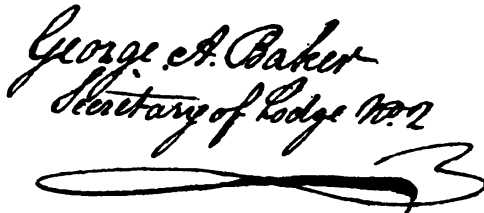 George A. Baker
Secretary of Lodge No. 2